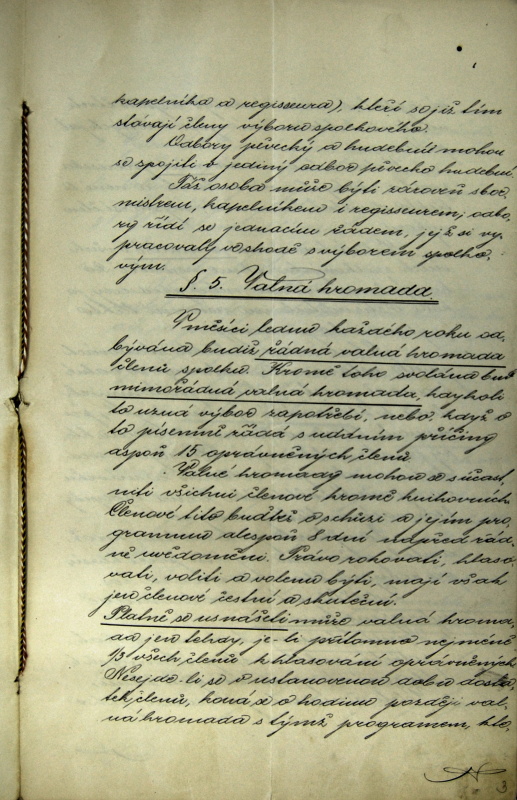 kapelníka a regisseura), kteří se již tím
stávají členy výboru spolkového.
Odbory pěvecký a hudební mohou
se spojiti v jediný odbor pěvecko hudební.
Táž osoba může býti zároveň sbor-
mistrem, kapelníkem i regisseurem, odbo-
ry řídí se jednacím řádem, jejž si vy-
pracovaly ve shodě s výborem spolko-
vým.
§. 5. Valná hromada.
V měsíci lednu každého roku od-
bývána budiž řádná valná hromada
členů spolku. Kromě toho svolána buď
mimořádná valná hromada, kdykoli
to uzná výbor zapotřebí, nebo, když o
to písemně žádá s udáním příčiny
aspoň 15 oprávněných členů.
Valné hromady mohou se súčast-
niti všichni členové kromě knihovních.
Členové tito buďtež o schůzi a jejím pro-
grammu alespoň 8 dní napřed řád-
ně uvědoměni. Právo rokovati, hlaso-
vati, voliti a volenu býti, mají však
jen členové čestní a skuteční.
Platně se usnášeti může valná hroma-
da jen tehdy, je-li přítomno nejméně
1/3 všech členů k hlasování oprávněných.
Nesejde-li se v ustanovenou dobu dosta-
tek členů, koná se o hodinu později val-
ná hromada s týmž programem, kte-
3